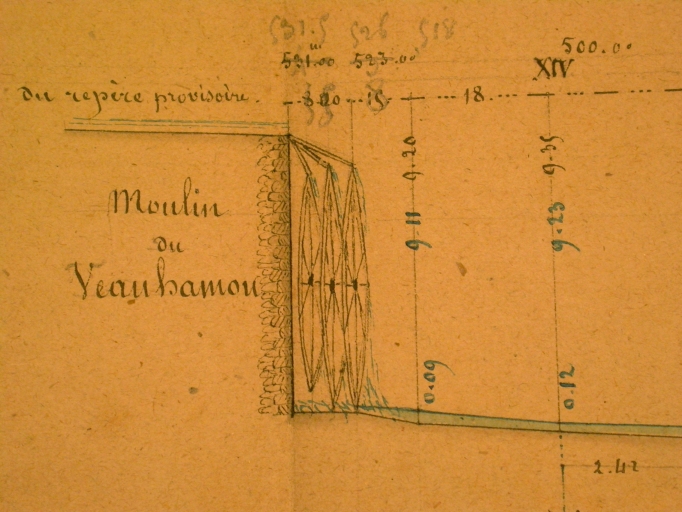 531.5 526 518
531.00 523.00 500.00
XIV
du repère provisoire.
18.
Moulin
du
Veauhamon
9.20
9.11
0.09
9.35
9.23
0.12
2.42